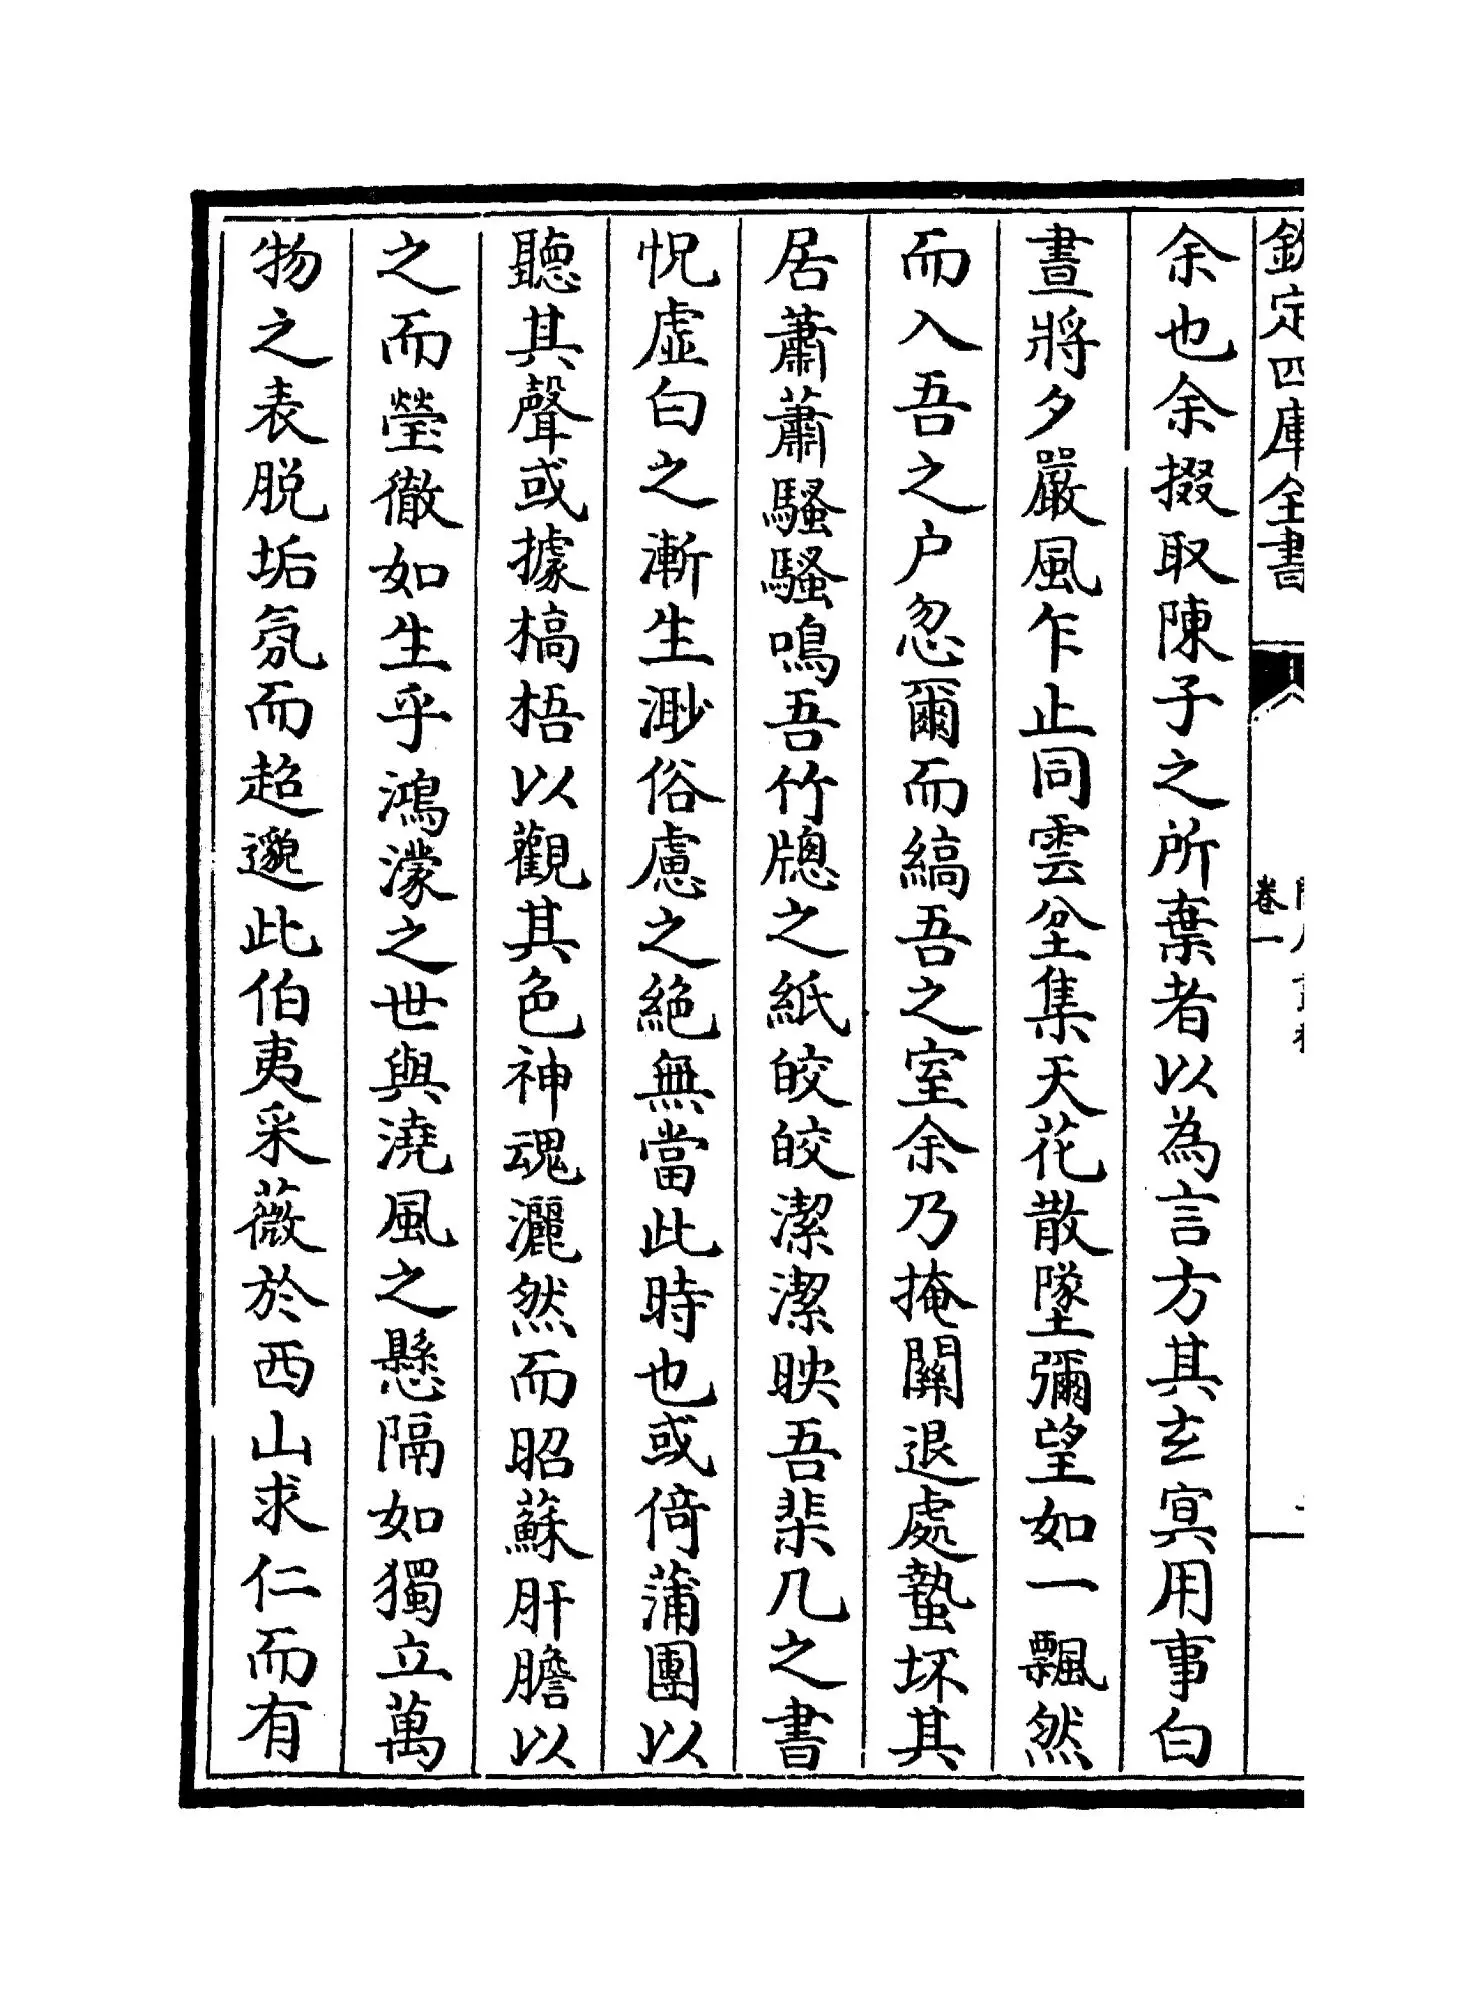 欽定四庫全書
卷一
余也余掇取陳子之所棄者以為言方其玄冥用事白
晝將夕嚴風乍止同雲坌集天花散墜彌望如一飄然
而入吾之户忽爾而縞吾之室余乃掩關退處蟄坏其
居蕭蕭騷騷鳴吾竹牎之紙皎皎潔潔映吾棐几之書
怳虛白之漸生渺俗慮之絕無當此時也或倚蒲團以
聽其聲或據槁梧以觀其色神魂灑然而昭蘇肝膽以
之而瑩徹如生乎鴻濛之世與澆風之懸隔如獨立萬
物之表脱垢氛而超邈此伯夷采薇於西山求仁而有